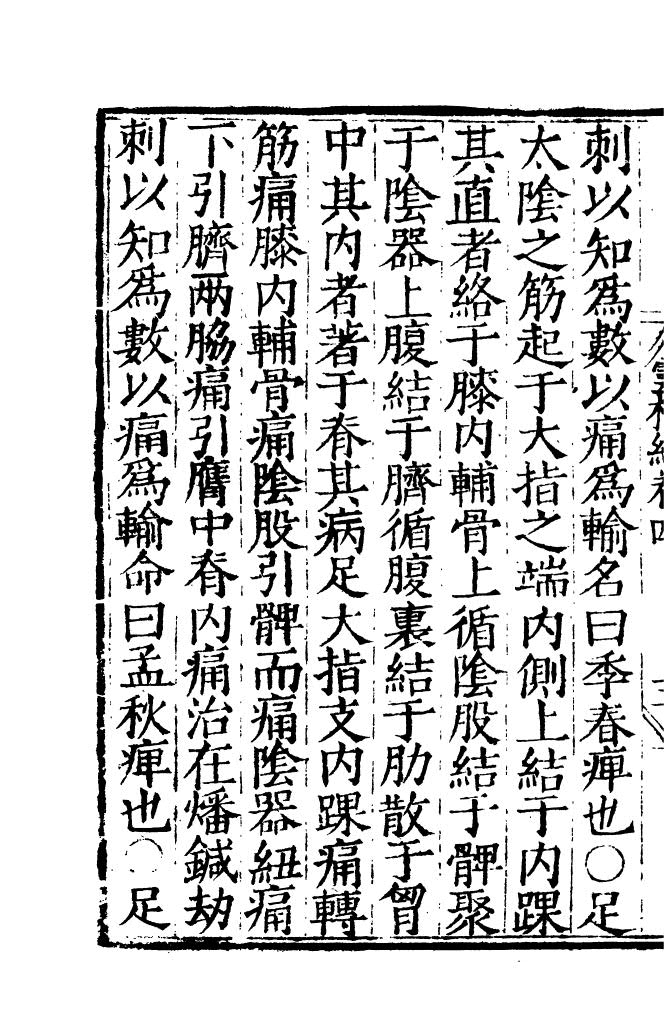 刺以知爲數以痛爲輸名曰季春痺也〇足
太陰之筋起于大指之端內側上結于内踝
其直者絡于膝内輔骨上循陰股結于髀聚
于陰器上腹結于臍循腹裏結于肋散于胷
中其内者著于脊其病足大指支内踝痛轉
筋痛膝内輔骨痛陰股引髀而痛陰器紐痛
下引臍兩脇痛引膺中脊内痛治在燔鍼劫
刺以知爲數以痛爲輸命曰孟秋痺也〇足